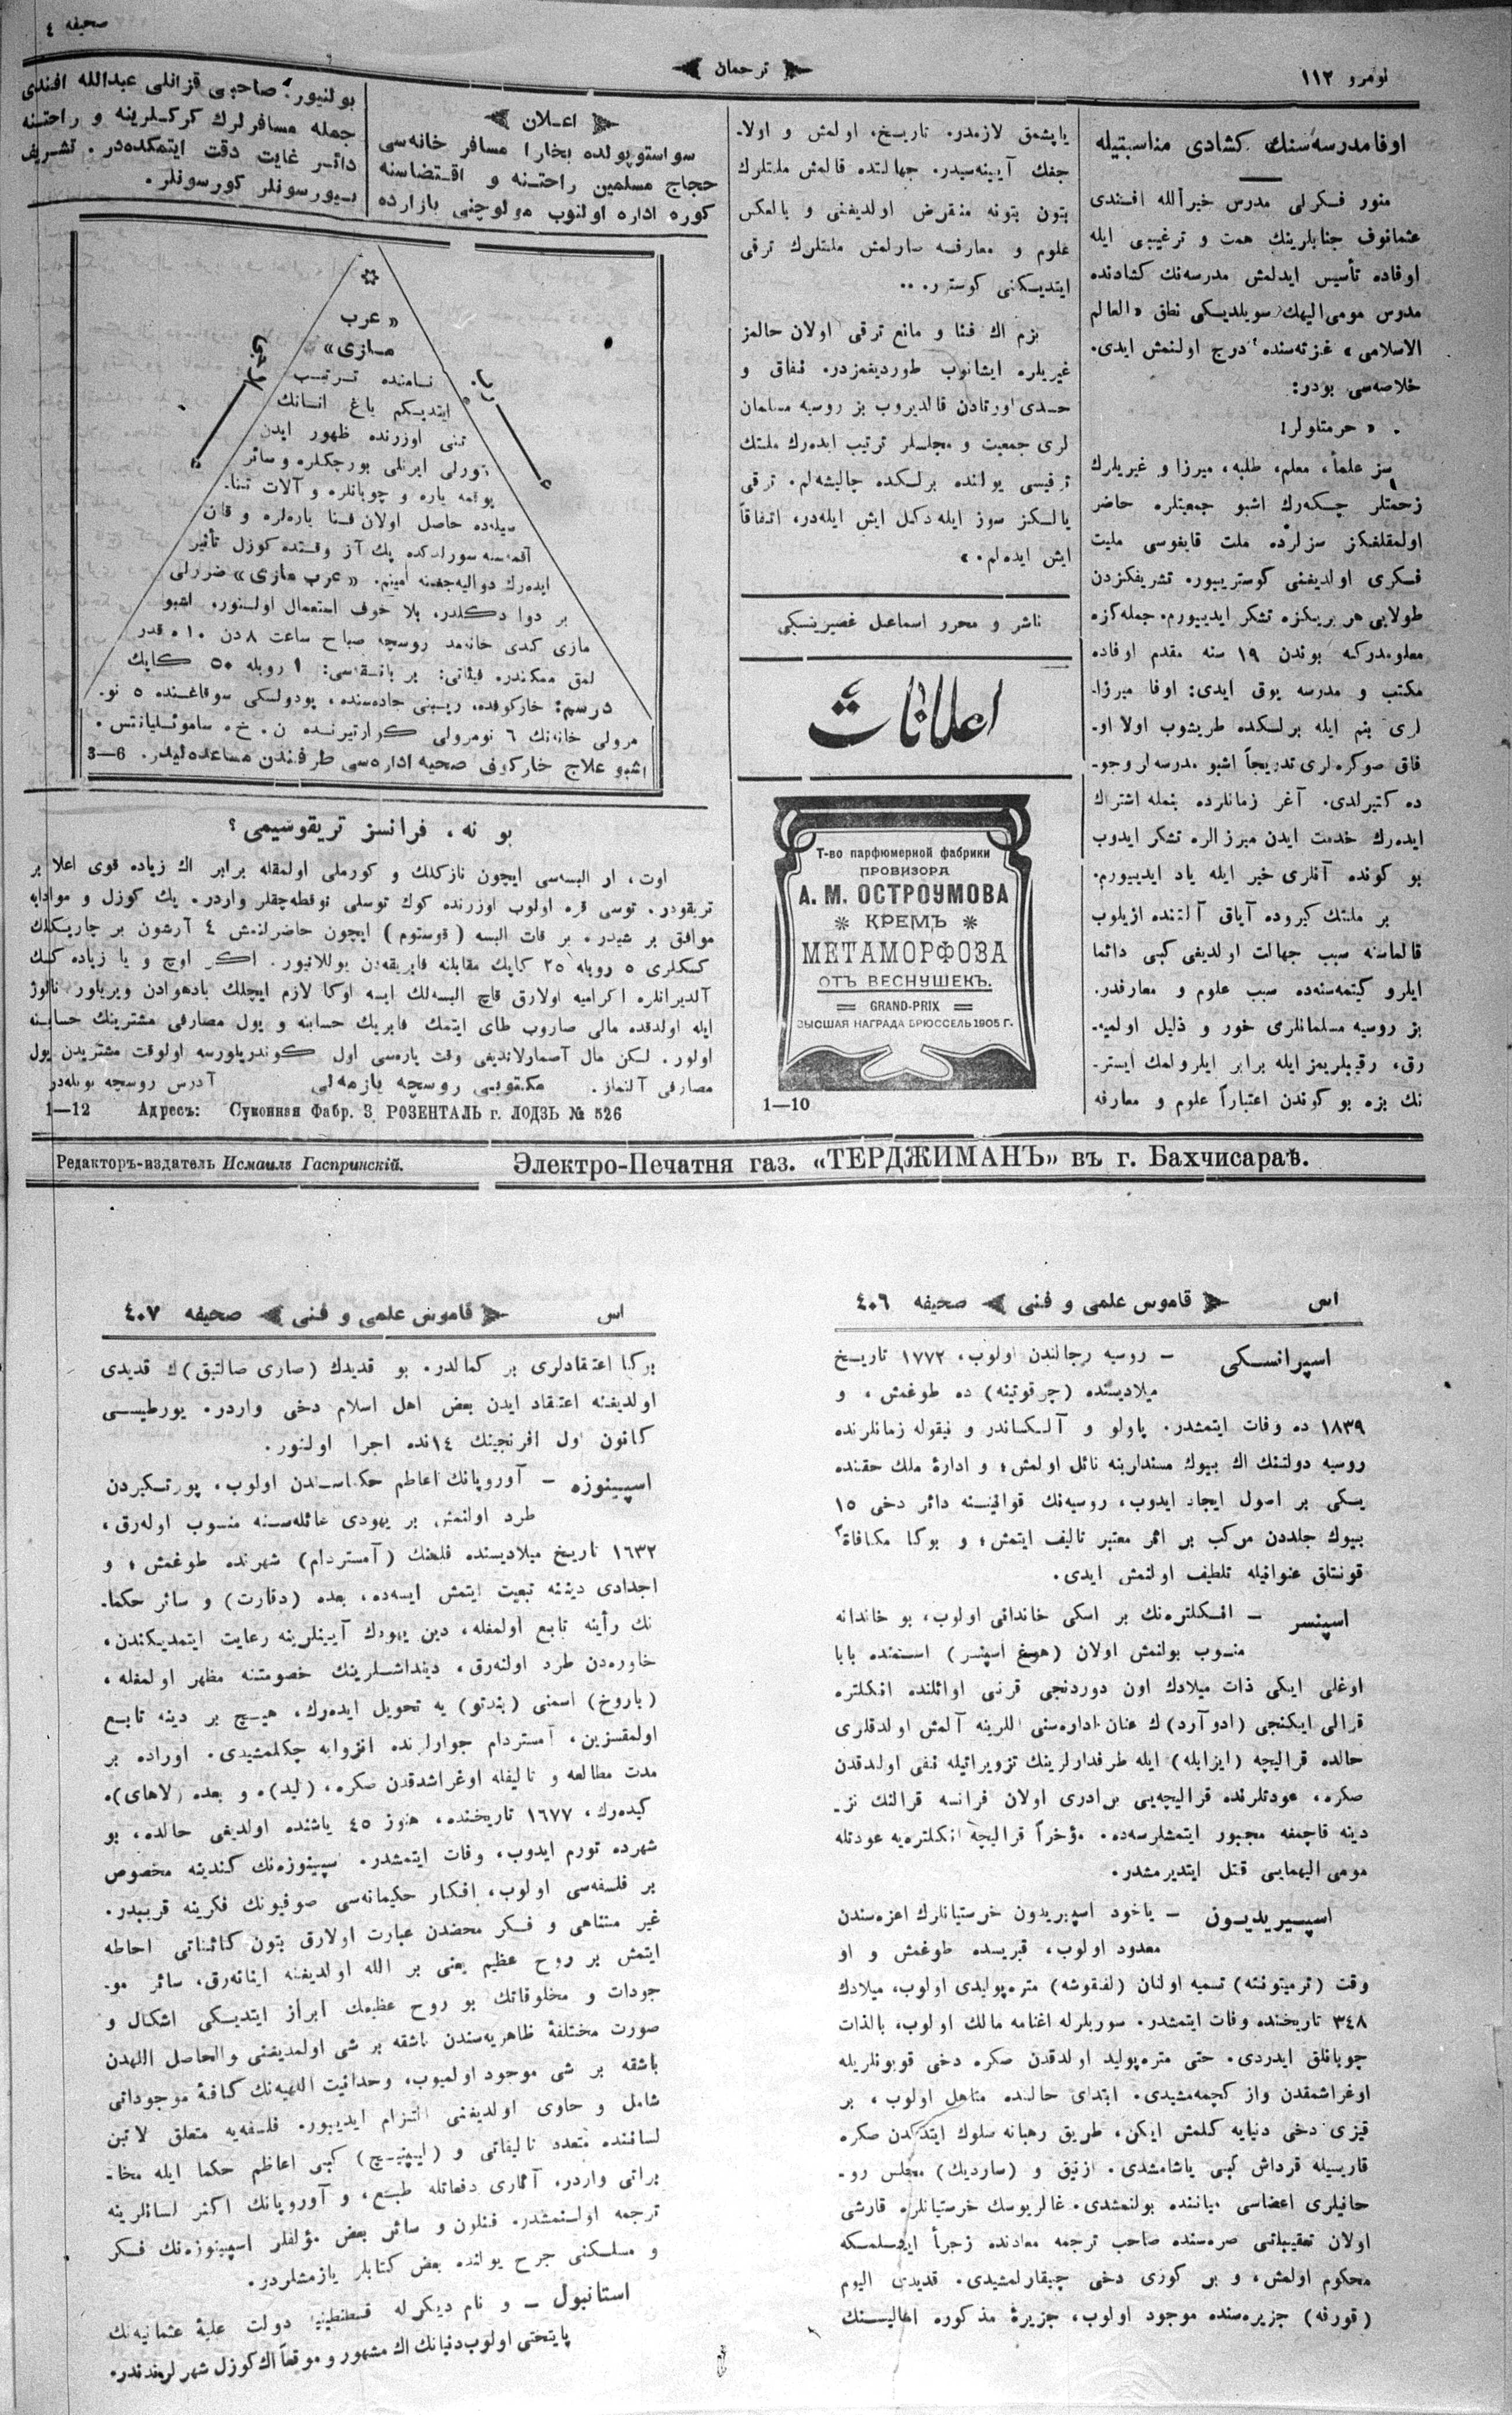 نومرو ١١٢
ترجمان
صحيفه ٤
اوفا مدرسه‌سنك كشادى مناسبتيله
منور فكرلى مدرس خيرالله افندى
عثمانوف جنابلرينك همت و ترغيبى ايله
اوفاده تأسيس ايدلمش مدرسه‌نك كشادنده
مدرس مومى اليهك سويلديكى نطق «العالم
الاسلامى» غزته‌سنده درج اولنمش ايدى.
خلاصه‌سى بودر:
« حرمتلولر!
سز علماء، معلم، طلبه، ميرزا و غيريلرك
زحمتلر چكه‌رك اشبو جمعيتلره حاضر
اولمقلغكز سزلرده ملت قايغوسى مليت
فكرى اولديغنى كوستريبور. تشريفكزدن
طولايى هر بريكزه تشكر ايدييورم. جمله‌كزه
معلومدركه بوندن ١٩ سنه مقدم اوفاده
مكتب و مدرسه يوق ايدى: اوفا ميرزا-
لرى بنم ايله برلكده طريشوب اولا او-
فاق صوكره‌لرى تدريجاً اشبو مدرسه‌لر وجو-
ده كتيرلدى. آغر زمانلرده بنمله اشتراك
ايده‌رك خدمت ايدن ميرزالره تشكر ايدوب
بو كونده آنلرى خير ايله ياد ايدييورم.
بر ملتك كيروده آياق آلتنده ازيلوب
قالماسنه سبب جهالت اولديغى كبى دائما
ايلرو كيتمه‌سنه‌ده سبب علوم و معارفدر.
بز روسيه مسلمانلرى خور و ذليل اولميه-
رق، رقيبلريمز ايله برابر ايلرولمك ايستر-
نك بزه بو كوندن اعتباراً علوم و معارفه
ياپشمق لازمدر. تاريخ، اولمش و اولا-
جغك آيينه‌سيدر. جهالتده قالمش ملتلرك
بتون بتونه منقرض اولديغنى و بالعكس
علوم و معارفه صارلمش ملتلرك ترقى
ايتديكنى كوسترر. ..
بزم اك فنا و مانع ترقى اولان حالمز
غيريلره ايشانوب طورديغمزدر. نفاق و
حسدى اورتادن قالديروب بز روسيه مسلمان
لرى جمعيت و مجلسلر ترتيب ايده‌رك ملتك
ترقيسى يولنده برلكده چاليشه‌لم. ترقى
يالكز سوز ايله دكل ايش ايله‌در، اتفاقاً
ايش ايده‌لم. »
ناشر و محرر اسماعيل غصپرينسكى
اعلانات
Т-во парфюмерной фабрики
ПРОВИЗОРА
А. М. ОСТРОУМОВА
КРЕМЪ
МЕТАМОРФОЗА
ОТЪ ВЕСНУШЕКЪ.
GRAND-PRIX
ВЫСШАЯ НАГРАДА БРЮССЕЛЬ 1905 Г.
1—10
اعلان
سواستوپولده بخارا مسافر خانه‌سى
حجاج مسلمين راحتنه و اقتضاسنه
كوره اداره اولنوب مولوچنى بازارده
بولنيور. صاحبى قزانلى عبدالله افندى
جمله مسافرلرك كركلرينه و راحتنه
دائر غايت دقت ايتمكده‌در. تشريف
بيورسونلر كورسونلر.
« عرب
مازى»
نامنده ترتيب
ايتديكم ياغ انسانك
تنى اوزرنده ظهور ايدن
تورلى ايرنلى بورچكلره و سائر
يوقمه ياره و چوبانلره و آلات تنا-
سيله‌ده حاصل اولان فنا ياره‌لره و قان
آقمه‌سنه سورلدكده پك آز وقتده كوزل تأثير
ايده‌رك دواليه‌جغنه امينم. «عرب مازى» ضررلى
بر دوا دكلدر. بلا خوف استعمال اولنور. اشبو
مازى كندى خانه‌مد روسچه صباح ساعت ٨ دن ١٠ ه قدر
لمق ممكندر. فيئاتى: بر بانقه‌سى: ١ روبله ٥٠ كاپك
درسم: خارکوفده، ريبنى جاده‌سنده، پودولسكى سوقاغنده ٥ نو-
مرولى خانه‌نك ٦ نومرولى كوارتيرنده ن. خ. ساموئليانتس.
اشبو علاج خاركوف صحيه اداره‌سى طرفندن مساعده‌ليدر. 6—3
بو نه، فرانسز تريقوسيمى؟
اوت، ار البسه‌سى ايچون نازكلك و كورملى اولمقله برابر اك زياده قوى اعلا بر
تريقودر. توسى قره اولوب اوزرنده كوك توسلى نوقطه‌چقلر واردر. پك كوزل و مودايه
موافق بر شيدر. بر قات البسه (قوستوم) ايچون حاضرلنمش ٤ آرشون بر چاريكلك
كسكلرى ٥ روبله ٢٥ كاپك مقابلنه فابريقه‌دن يوللانيور. اكر اوچ و يا زياده كسك
آلديرانلره اكراميه اولارق قاچ البسه‌لك ايسه اوكا لازم ايچلك بادهوادن ويريلور نالوژ
ايله اولدقده مالى صاروب طاى ايتمك فابريك حسابنه و يول مصارفى مشترينك حسابنه
اولور. لكن مال آصمارلانديغى وقت پاره‌سى اول كوندريلورسه اولوقت مشتريدن يول
مصارفى آلنماز. مكتوبى روسچه يازمه‌لى آدرس روسچه بويله‌در
1—12 Адресъ: Суконная Фабр. З. РОЗЕНТАЛЬ г. ЛОДЗЬ № 526
Редакторъ-издатель Исмаилъ Гаспринскій.
Электро-Печатня газ. «ТЕРДЖИМАНЪ» въ г. Бахчисараѣ.
اس قاموس علمى و فنى صحيفه ٤٠٦
اسپرانسكى – روسيه رجالندن اولوب، ١٧٧٢ تاريخ
ميلاديسنده (چرقوتينه) ده طوغمش، و
١٨٣٩ ده وفات ايتمشدر. پاولو و آلكساندر و نيقوله زمانلرنده
روسيه دولتنك اك بيوك مسندلرينه نائل اولمش؛ و ادارۀ ملك حقنده
يسكى بر اصول ايجاد ايدوب، روسيه‌نك قوانيننه دائر دخى ١٥
بيوك جلددن مركب بر اثر معتبر تاليف ايتمش؛ و بوكا مكافاة
قونتلق عنوانيله تلطيف اولنمش ايدى.
اسپنسر – انكلتره‌نك بر اسكى خاندانى اولوب، بو خاندانه
منسوب بولنمش اولان (هوغ اسپنسر) اسمنده بابا
اوغلى ايكى ذات ميلادك اون دوردنجى قرنى اوائلنده انكلتره
قرالى ايكنجى (ادوآرد)ك عنان اداره‌سنى اللرينه آلمش اولدقلرى
حالده قراليچه (ايزابله) ايله طرفدارلرينك تزويراتيله نفى اولدقدن
صكره، عودتلرنده قراليچه‌يى برادرى اولان فرانسه قرالنك نز-
دينه قاچمغه مجبور ايتمشلرسه‌ده. مؤخراً قراليچه انكلتره‌يه عودتله
مومى اليهمايى قتل ايتديرمشدر.
اسپيريديون – ياخود اسپيريدون خرستيانلرك اعزه‌سندن
معدود اولوب، قبريسده طوغمش و او
وقت (ترميتونته) تسميه اولنان (لفقوشه) متره‌پوليدى اولوب، ميلادك
٣٤٨ تاريخنده وفات ايتمشدر. سوريلرله اغنامه مالك اولوب، بالذات
چوبانلق ايدردى. حتى متره‌پوليد اولدقدن صكره دخى قويونلريله
اوغراشمقدن واز كچمه‌مشيدى. ابتداى حالنده متاهل اولوب، بر
قيزى دخى دنيايه كلمش ايكن، طريق رهبانه سلوك ايتدكدن صكره
قاريسيله قرداش كبى ياشامشدى. ازنيق و (سارديك) مجلس رو-
حانيلرى اعضاسى مياننده بولنمشدى. غالريوسك خرستيانلره قارشى
اولان تعقيباتى صره‌سنده صاحب ترجمه معادنده زجراً ايشلمكه
محكوم اولمش، و بر كوزى دخى چيقارلمشيدى. قديدى اليوم
(قورفه) جزيره‌سنده موجود اولوب، جزيرۀ مذكوره اهاليسنك
اس قاموس علمى و فنى صحيفه ٤٠٧
بركا اعتقادلرى بر كمالدر. بو قديدك (صارى صالتيق)ك قديدى
اولديغنه اعتقاد ايدن بعض اهل اسلام دخى واردر. يورطيسى
كانون اول افرنجينك ١٤نده اجرا اولنور.
اسپينوزه – آوروپانك اعاظم حكماسندن اولوب، پورتكيزدن
طرد اولنمش بر يهودى عائله‌سنه منسوب اوله‌رق،
١٦٣٢ تاريخ ميلاديسنده فلمنك (آمستردام) شهرنده طوغمش؛ و
اجدادى ديننه تبعيت ايتمش ايسه‌ده، بعده (دقارت) و سائر حكما-
نك رأينه تابع اولمغله، دين يهودك آيينلرينه رعايت ايتمديكندن،
خاوره‌دن طرد اولنه‌رق، دينداشلرينك خصومتنه مظهر اولمغله،
(باروخ) اسمنى (بندتو) يه تحويل ايده‌رك، هيچ بر دينه تابع
اولمقسزين، آمستردام جوارلرنده انزوايه چكلمشيدى. اوراده بر
مدت مطالعه و تاليفله اوغراشدقدن صكره، (ليد)ه و بعده (لاهاى)ه
كيده‌رك، ١٦٧٧ تاريخنده، هنوز ٤٥ ياشنده اولديغى حالده، بو
شهرده تورم ايدوب، وفات ايتمشدر. اسپينوزه‌نك كندينه مخصوص
بر فلسفه‌سى اولوب، افكار حكيمانه‌سى صوفيونك فكرينه قريبدر.
غير متناهى و فكر محضدن عبارت اولارق بتون كائناتى احاطه
ايتمش بر روح عظيم يعنى بر الله اولديغنه اينانه‌رق، سائر مو-
جودات و مخلوقاتك بو روح عظيمك ابراز ايتديكى اشكال و
صورت مختلفۀ ظاهريه‌سندن باشقه بر شى اولمديغنى والحاصل اللهدن
باشقه بر شى موجود اولميوب، وحدانيت الهيه‌نك كافۀ موجوداتى
شامل و حاوى اولديغنى التزام ايدييور. فلسفه‌يه متعلق لاتين
لساننده متعدد تاليفاتى و (ليپنيچ) كبى اعاظم حكما ايله مخا-
براتى واردر. آثارى دفعاتله طبع، و آوروپانك اكثر لسانلرينه
ترجمه اولنمشدر. فنلون و سائر بعض مؤلفلر اسپينوزه‌نك فكر
و مسلكنى جرح يولنده بعض كتابلر يازمشلردر.
استانبول – و نام ديكرله قسطنطينيه دولت عليۀ عثمانيه‌نك
پايتختى اولوب دنيانك اك مشهور و موقعاً اك كوزل شهرلرندندر.